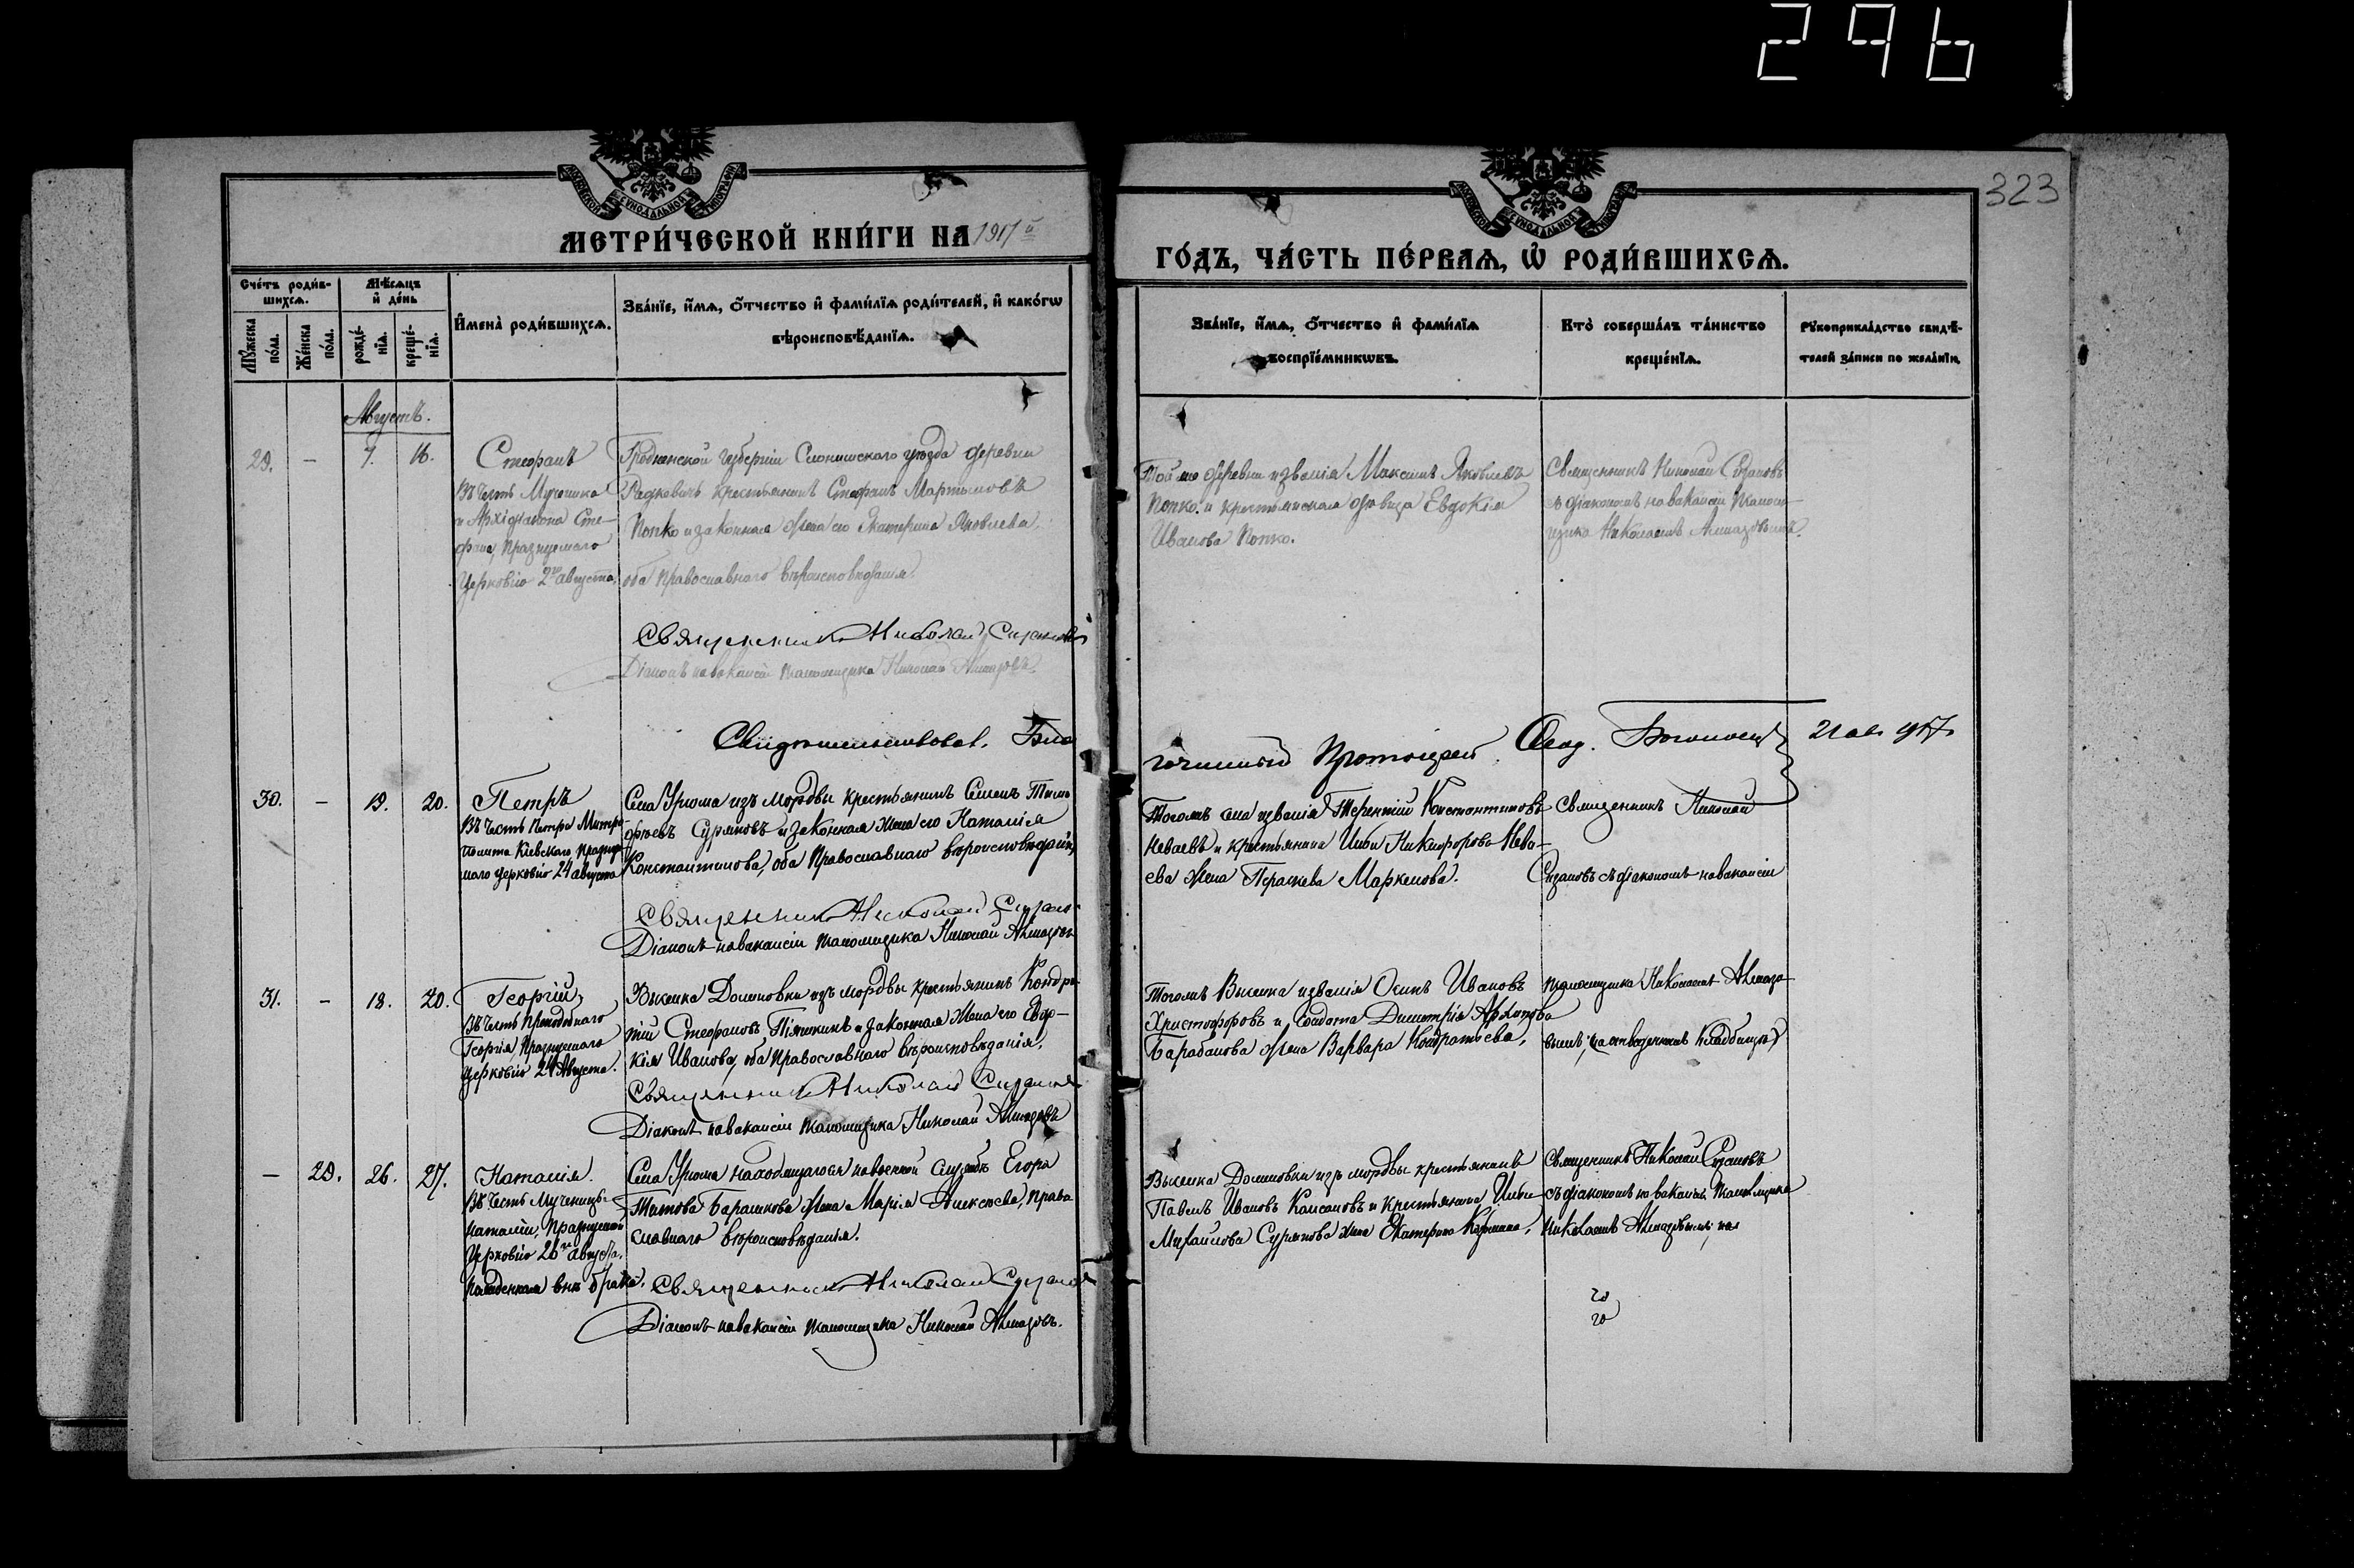 296
323
СѴНОДАЛЬНОЙ
СѴНОДАЛЬНОЙ
МЕТРИ́ЧЕСКОЙ КНИ́ГИ НА 1917й
ГО́ДЪ, ЧА́СТЬ ПЕ́РВАѦ, Ѡ҆ РОДИ́ВШИХСѦ.
Сче́тъ роди́в-
шихсѧ.
Мѣ́сѧцъ
и҆ де́нь
Мꙋ́жеска
по́ла.
Же́нска
по́ла.
рожде́-
нїѧ.
креще́-
нїѧ.
И҆мена̀ роди́вшихсѧ.
Зва́нїе, и҆́мѧ, ѻ҆́тчество и҆ фами́лїѧ роди́телей, и҆ како́гѡ
вѣроисповѣ́данїѧ.
Зва́нїе, и҆́мѧ, ѻ҆́тчество и҆ фами́лїѧ
воспрїе́мникѡвъ.
Кто̀ соверша́лъ та́инство
креще́нїѧ.
Рꙋкоприкла́дство свидѣ́-
телей за́писи по жела́нїю.
Августъ.
29. – 7. 16.
Стефанъ
Въ честь Мученика
и Архідіакона Сте-
фана, празднуемаго
Церковію 2го августа.
Гродненской губерніи Слонимскаго уѣзда деревни
крестьянинъ Стефанъ Мартыновъ
Попко и законная жена его Екатерина Яковлева.
оба православнаго вѣроисповѣданія.
Священникъ Николай Сизановъ
Діаконъ на вакансіи псаломщика Николай Алмазовъ.
Той же деревни и званія Максимъ Яковлевъ
Попко и крестьянская дѣвица Евдокія
Иванова Попко.
Священникъ Николай Сизановъ
съ діакономъ на вакансіи псалом-
щика Николаемъ Алмазовымъ.
Свидѣтельствовал. Бла
гочинный Протоіерей
30. – 19. 20.
Петръ
Въ честь Петра Митро-
полита Кіевскаго празднуе-
маго церковію 24 августа
Села Урюма изъ мордвы крестьянинъ Семенъ Тимо
фѣевъ Суряковъ и законная жена его Наталія
Константинова, оба православнаго вѣроисповѣданія,
Священникъ Николай Сизано
Діаконъ на вакансіи псаломщика Николай Алмазовъ
Тогожъ села и званія Терентій Константиновъ
Неваевъ и крестьянина Никифорова Нева-
ева жена Параскева Маркелова.
Священникъ Николай
Сизановъ съ діакономъ на вакансіи
31. – 18. 20.
Георгій,
Въ честь преподобнаго
Георгія, празднуемаго
церковію 24 Августа.
Выселка Домновки изъ мордвы крестьянинъ Кондра
тій Стефановъ и законная жена его Евдо-
кія Иванова, оба православнаго вѣроисповѣданія.
Священникъ Николай Сизанов
Діаконъ на вакансіи псаломщика Николай Алмазовъ
Тогожъ Выселка и званія Осипъ Ивановъ
Христофоровъ и солдата Димитрія Архипова
Барабанова жена Варвара Кондратьева,
псаломщика Николаемъ Алмазо-
вымъ,
– 29. 26. 27.
Наталія.
Въ честь Мученицы
Наталіи, празднуемой
Церковію 26го августа.
внѣ брака.
Села Урюма находящагося на военной службѣ Егора
Титова Барашкова жена Марія Алексѣева, право
славнаго вѣроисповѣданія.
Священникъ Николай Сизано
Діаконъ на вакансіи псаломщика Николай Алмазовъ.
Выселка Домновки изъ мордвы крестьянинъ
Павелъ Ивановъ и крестьянина
Михайлова Сурякова жена Екатерина
Священникъ Николай Сизановъ
съ діакономъ на вакансіи псаломщика
Николаемъ Алмазовымъ
20
20